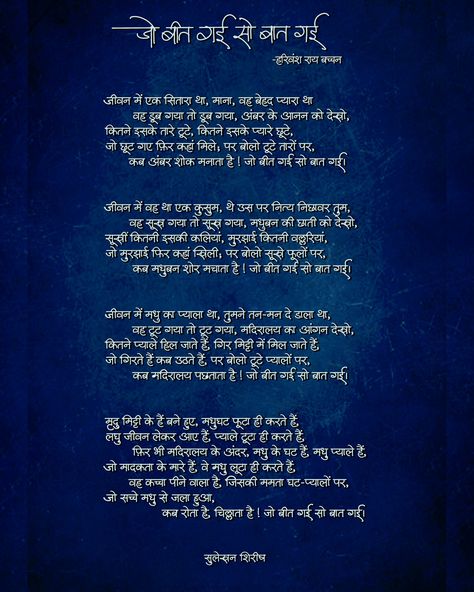 जो बीत गई सो बात गई
-हरिवंश राय बच्चन
जीवन में एक सितारा था, माना, वह बेहद प्यारा था
वह डूब गया तो डूब गया, अंबर के आनन को देखो,
कितने इसके तारे टूटे, कितने इसके प्यारे छूटे,
जो छूट गए फ़िर कहां मिले; पर बोलो टूटे तारों पर,
कब अंबर शोक मनाता है ! जो बीत गई सो बात गई।
जीवन में वह था एक कुसुम, थे उस पर नित्य निछावर तुम,
वह सूख गया तो सूख गया, मधुबन की छाती को देखो,
सूखीं कितनी इसकी कलियां, मुरझाई कितनी वल्लरियां,
जो मुरझाई फिर कहां खिली; पर बोलो सूखे फूलों पर,
कब मधुबन शोर मचाता है ! जो बीत गई सो बात गई।
जीवन में मधु का प्याला था, तुमने तन-मन दे डाला था,
वह टूट गया तो टूट गया, मदिरालय का आंगन देखो,
कितने प्याले हिल जाते हैं, गिर मिट्टी में मिल जाते हैं,
जो गिरते हैं कब उठते हैं; पर बोलो टूटे प्यालों पर,
कब मदिरालय पछताता है ! जो बीत गई सो बात गई।
मृदु मिट्टी के हैं बने हुए, मधुघट फूटा ही करते हैं,
लघु जीवन लेकर आए हैं, प्याले टूटा ही करते हैं,
फ़िर भी मदिरालय के अंदर, मधु के घट हैं, मधु प्याले हैं,
जो मादकता के मारे हैं, वे मधु लूटा ही करते हैं,
वह कच्चा पीने वाला है, जिसकी ममता घट-प्यालों पर,
जो सच्चे मधु से जला हुआ,
कब रोता है, चिल्लाता है ! जो बीत गई सो बात गई।
सुलेखन शिरीष